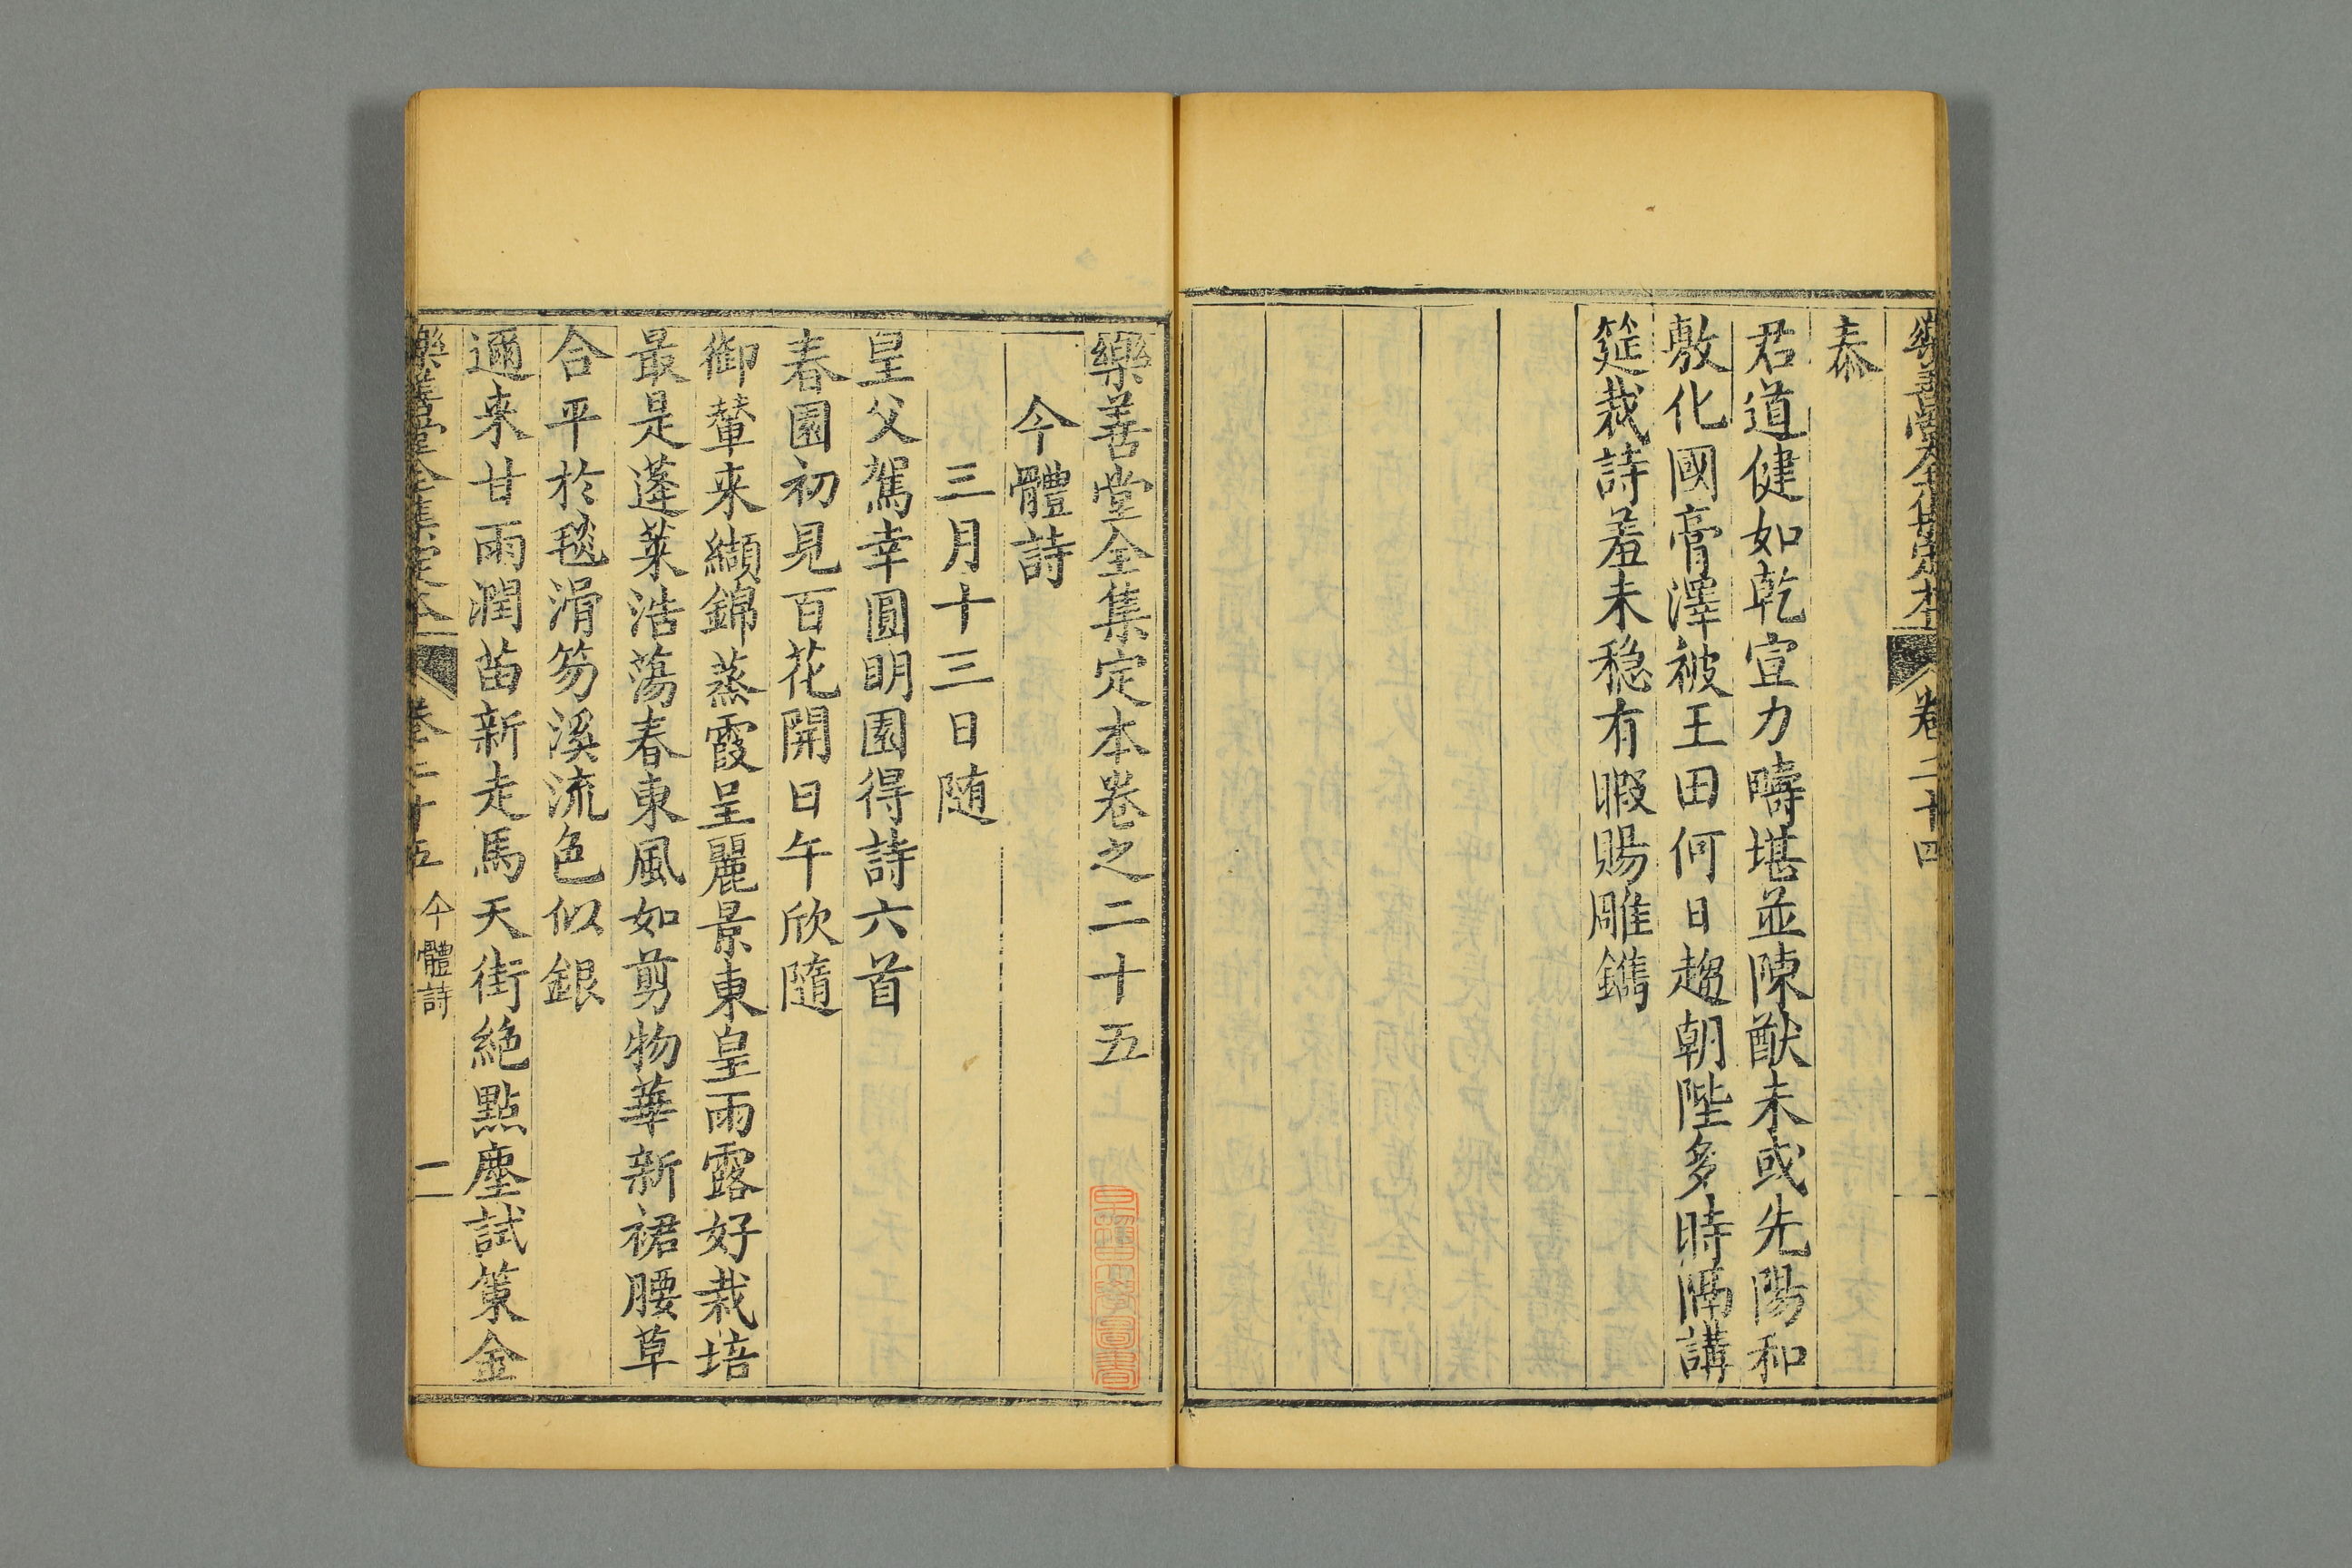 樂善堂全集定本 卷二十四
泰
君道健如乾宣力疇堪並陳猷未或先陽和
敷化國膏澤被王田何日趨朝陛多時隔講
筵裁詩羞未穏有暇賜雕鐫
樂善堂全集定本卷之二十五
今體詩
三月十三日随
皇父駕幸圓明園得詩六首
春園初見百花開日午欣隨
御輦来纈錦蒸霞呈麗景東皇雨露好栽培
最是蓬莱浩蕩春東風如剪物華新裙腰草
合平於毯滑笏溪流色似銀
邇来甘雨潤苗新走馬天街絶點塵試策金
樂善堂全集定本 卷二十五 今體詩 一